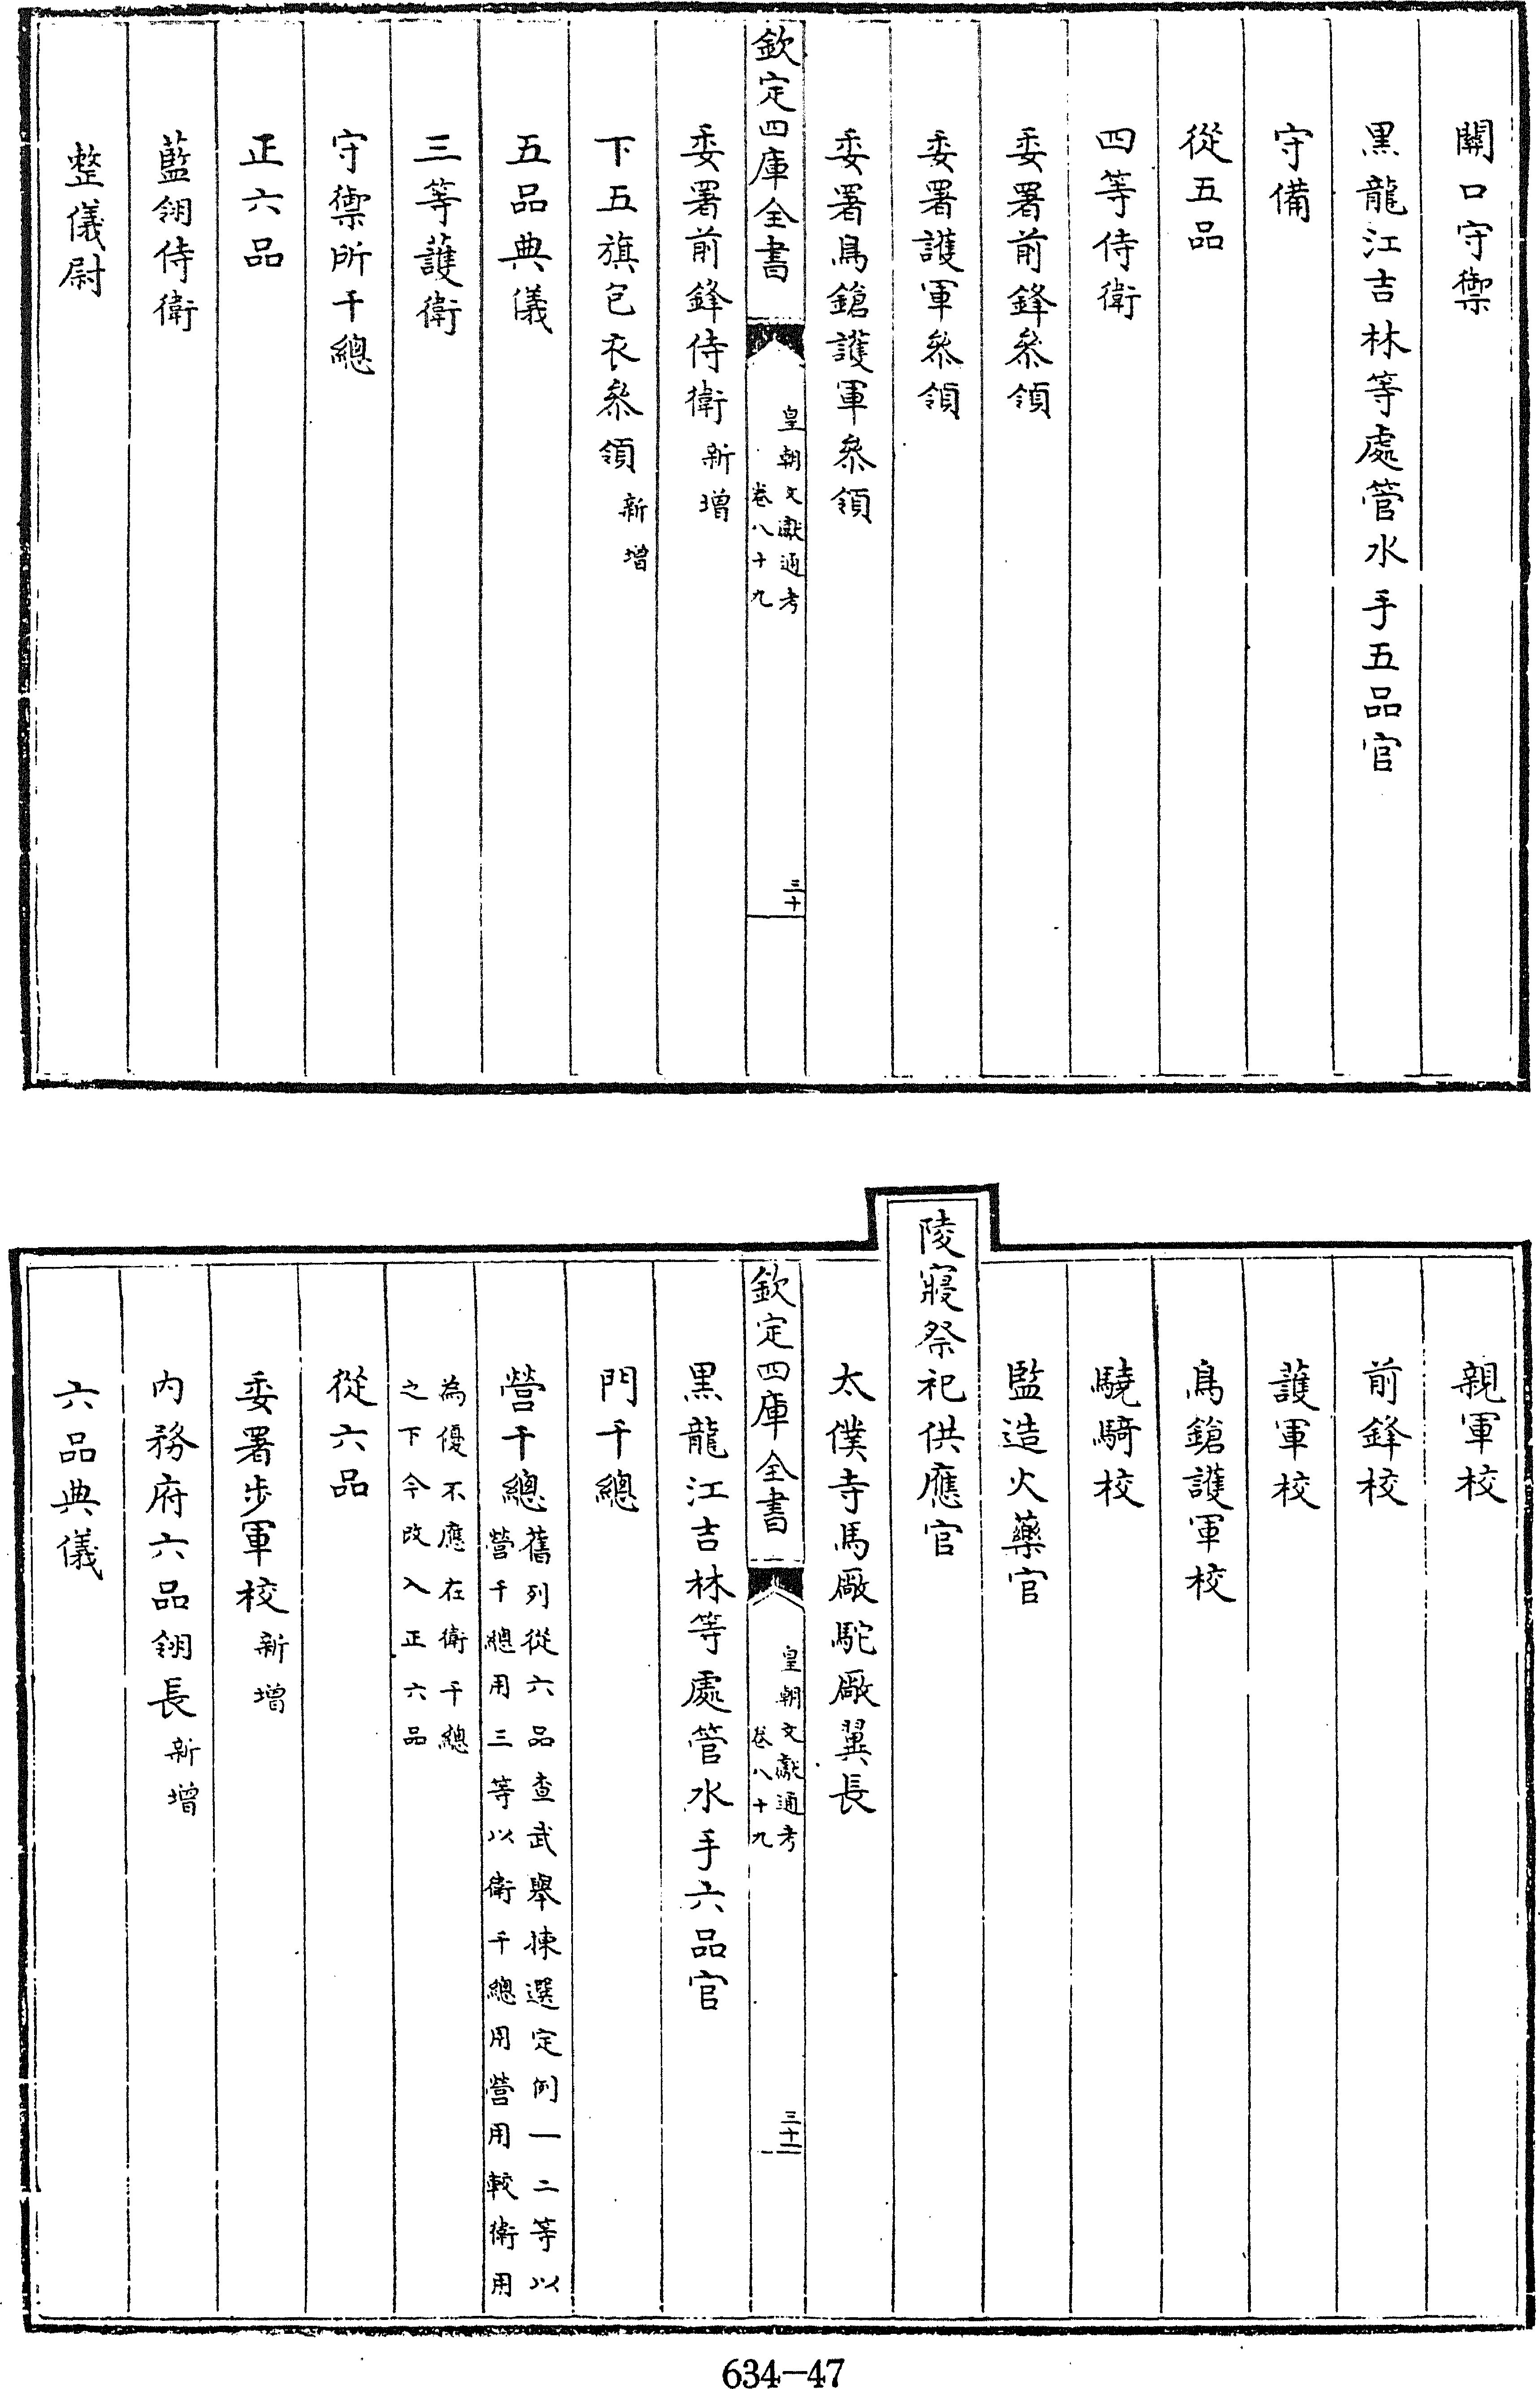 關口守禦
黑龍江吉林等處管水手五品官
守備
從五品
四等侍衛
委署前鋒叅領
委署護軍叅領
委署鳥鎗護軍叅領
欽定四庫全書
皇朝文獻通考
卷八十九
三十
委署前鋒侍衛新增
下五旗包衣叅領新增
五品典儀
三等護衛
守禦所千總
正六品
藍翎侍衛
整儀尉
親軍校
前鋒校
護軍校
鳥鎗護軍校
驍騎校
監造火藥官
陵寢祭祀供應官
太僕寺馬廠駝廠翼長
欽定四庫全書
皇朝文獻通考
卷八十九
三十一
黑龍江吉林等處管水手六品官
門千總
營千總舊列從六品查武舉揀選定例一二等以
營千總用三等以衛千總用營用較衛用
為優不應在衛千總
之下今改入正六品
從六品
委署步軍校新增
內務府六品翎長新增
六品典儀
634-47